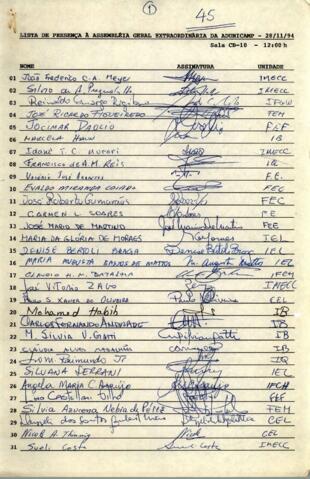 1
45
LISTA DE PRESENÇA À ASSEMBLÉIA GERAL EXTRAORDINÁRIA DA ADUNICAMP - 28/11/94
Sala CB-10 - 12:00h
NOME ASSINATURA UNIDADE
01 João Frederico C.A. Meyer IMECC
02 Silvio de A. IMECC
03 Reinaldo Camargo IFGW
04 José Ricardo Figueiredo FEM
05 Jocimar Daolio FEF
06 Marcela
07 Idone T. C. IMECC
08 Francisco de A. M. Reis IQ
09 F.E.
10 Evaldo Miranda Coiado FEC
11 José Roberto Guimarães FEC
12 Carmen L. Soares FE
13 José Mario de Martino FEE
14 Maria da Glória de Moraes IEL
15 Denise Bértoli Braga Denise Bértoli Braga IEL
16 Maria Augusta Bastos de Mattos M. Augusta Mattos IEL
17 Claudio H. M. Batalha IFCH
18 José Vitório Zago IMECC
19 S. Xavier de Oliveira CEL
20 Mohamed Habib IB
21 Carlos Fernando Andrade IB
22 M. Silvia V. Gatti IB
23 IB
24 Raimundo Jr IQ
25 Silvana Serrani IEL
26 Angela Maria C. Araújo IFCH
27 Lino Castellani Filho FEF
28 Silvia Azucena Nebra de Pérez FEM
29 CEL
30 Nicole A. CEL
31 Sueli Costa Sueli Costa IMECC